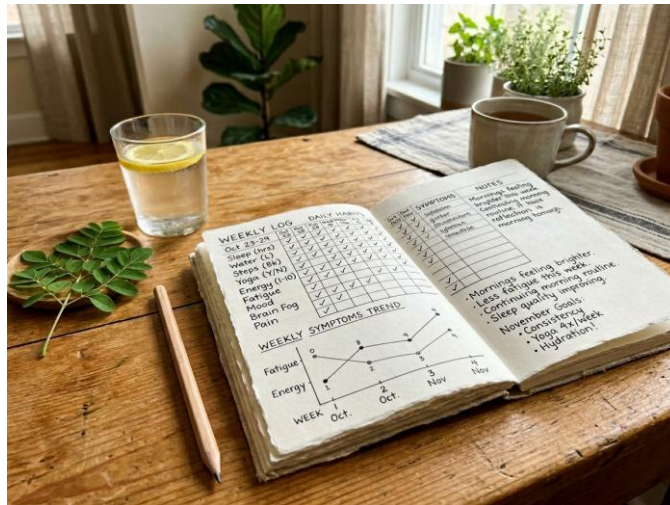 WEEKLY LOG
DAILY HABITS
Oct 23-29
Sleep (hrs)
Water (L)
Steps (8k)
Yoga (Y/N)
Energy (1-10)
Fatigue
Mood
Brain Fog
Pain
WEEKLY SYMPTOMS TREND
Fatigue
Energy
0 8 2 3 4
1
WEEK 1 2 3 4
Oct. Oct. Nov Nov
SYMPTOMS
NOTES
Mornings feeling
brighter this week
routine
reflection is
morning
• Mornings feeling brighter.
• Less fatigue this week.
• Continuing morning routine.
Sleep quality improving.
November Goals:
• Consistency
• Yoga 4x/week
• Hydration!